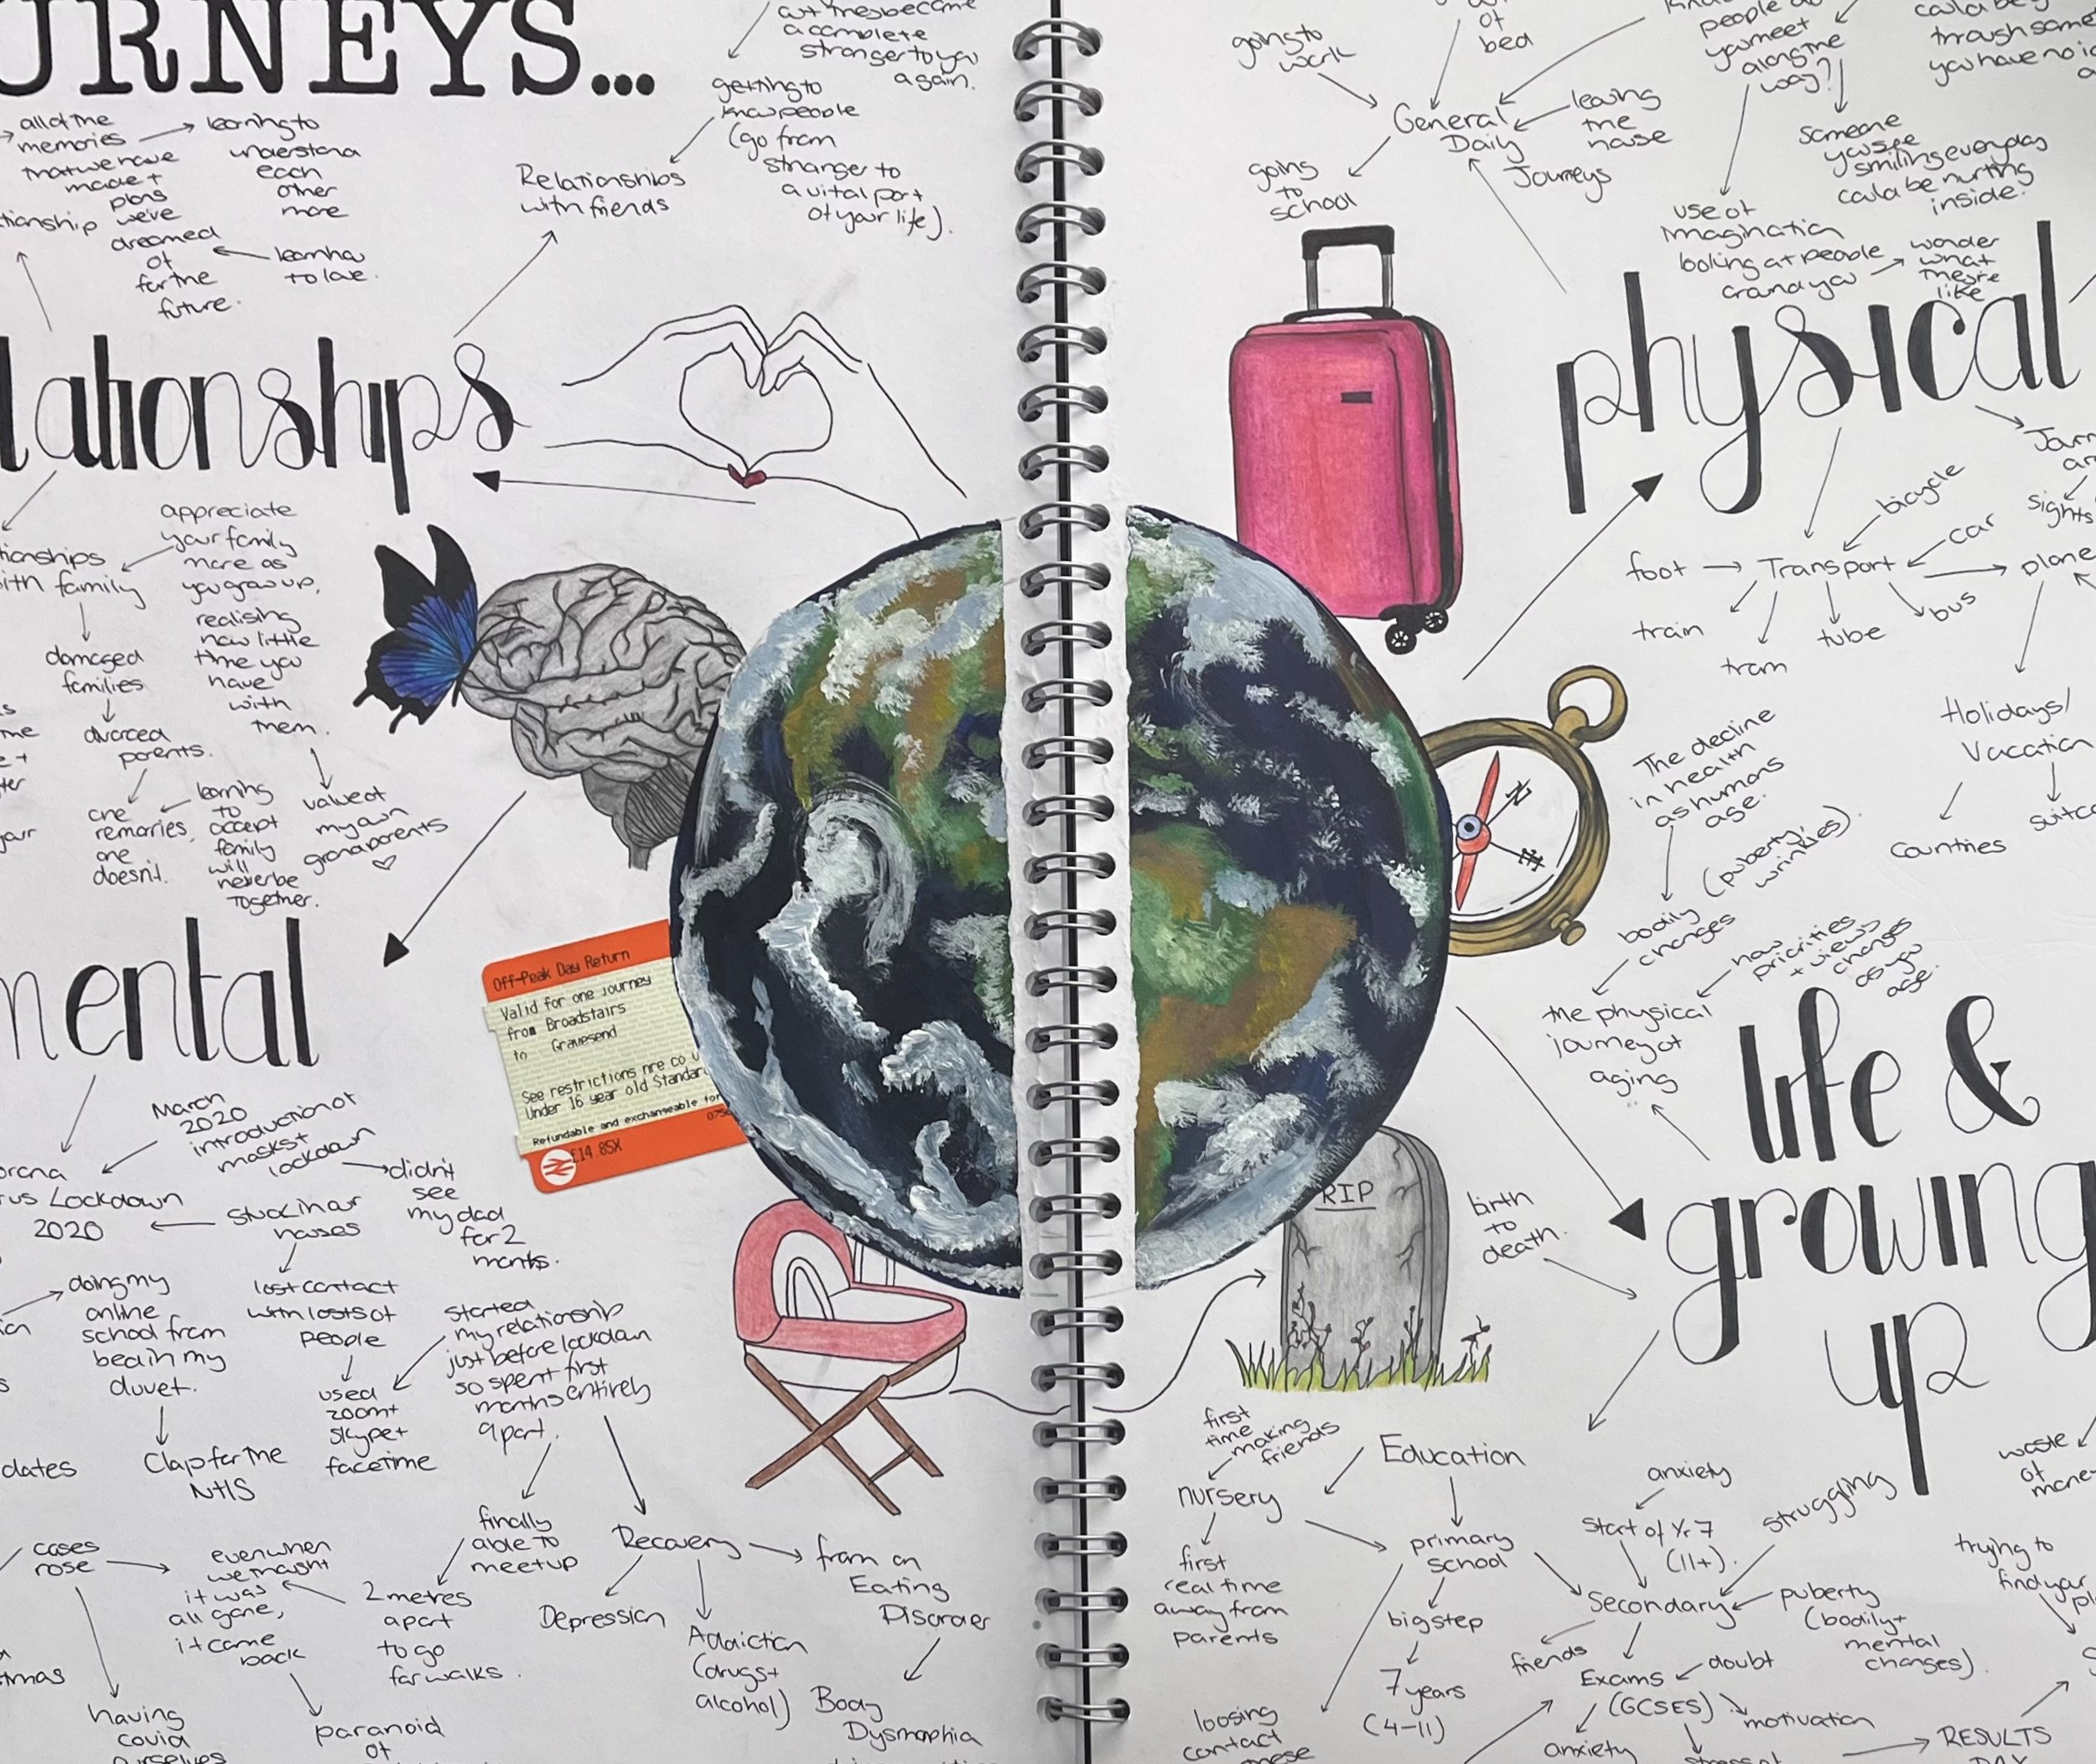 URNEYS...
all of the
memories
that we have
made +
plans
we've
dreamed
of
for the
future.
learning to
understand
each
other
more
learn how
to love.
tionship
become
a complete
stranger to you
again.
getting to
know people
(go from
stranger to
a vital part
of your life).
Relationships
with friends
lationships
tionships
ith family
appreciate
your family
more as
you grow up.
realising
how little
time you
have
with
them.
damaged
families
divorced
parents.
one
remarries,
one
doesn't.
learning
to
accept
family
will
never be
together.
value of
my own
grandparents
mental
March
2020
introduction of
masks +
lockdown
didn't
see
my dad
for 2
months.
orona
rus Lockdown
2020
stuck in our
houses
doing my
online
school from
bed in my
duvet.
lost contact
with lots of
people
started
my relationship
just before lockdown
so spent first
months entirely
apart.
used
zoom +
skype +
facetime
Clap for the
NHS
dates
finally
able to
meet up
2 metres
apart
to go
for walks.
Recovery
from an
Eating
Disorder
Depression
Addiction
(drugs +
alcohol)
Body
Dysmorphia
cases
rose
even when
we thought
it was
all gone,
it came
back
tmas
having
covid
ourselves
paranoid
of
Off-Peak Day Return
Valid for one journey
from Broadstairs
to Gravesend
See restrictions nre co u
Under 16 year old Standar
Refundable and exchangeable for
£14 85X
going to
work
of
bed
General
Daily
Journeys
leaving
the
house
going
to
school
people
you meet
along the
way?
someone
you see
smiling everyday
could be hurting
inside.
could be
through some
you have no i
use of
imagination
looking at people
around you
wonder
what
they're
like
physical
Journ
sights
bicycle
car
foot
Transport
plane
train
tram
tube
bus
Holidays/
Vacation
Countries
suitc
The decline
in health
as humans
age.
(puberty,
wrinkles)
bodily
changes
how
priorities
+ views
changes
as you
age.
the physical
journey of
aging
life &
growing
up
birth
to
death.
RIP
Education
first
time
making
friends
nursery
first
real time
away from
parents
primary
school
big step
7 years
(4-11)
loosing
contact
these
anxiety
start of Yr 7
(11+).
struggling
Secondary
puberty
(bodily +
mental
changes)
friends
Exams
(GCSES)
doubt
motivation
anxiety
RESULTS
waste
of
mone
trying to
find your